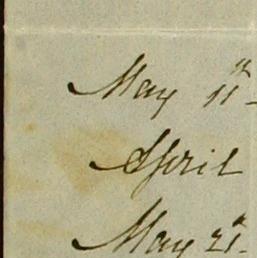 May 11th
April
May 21st